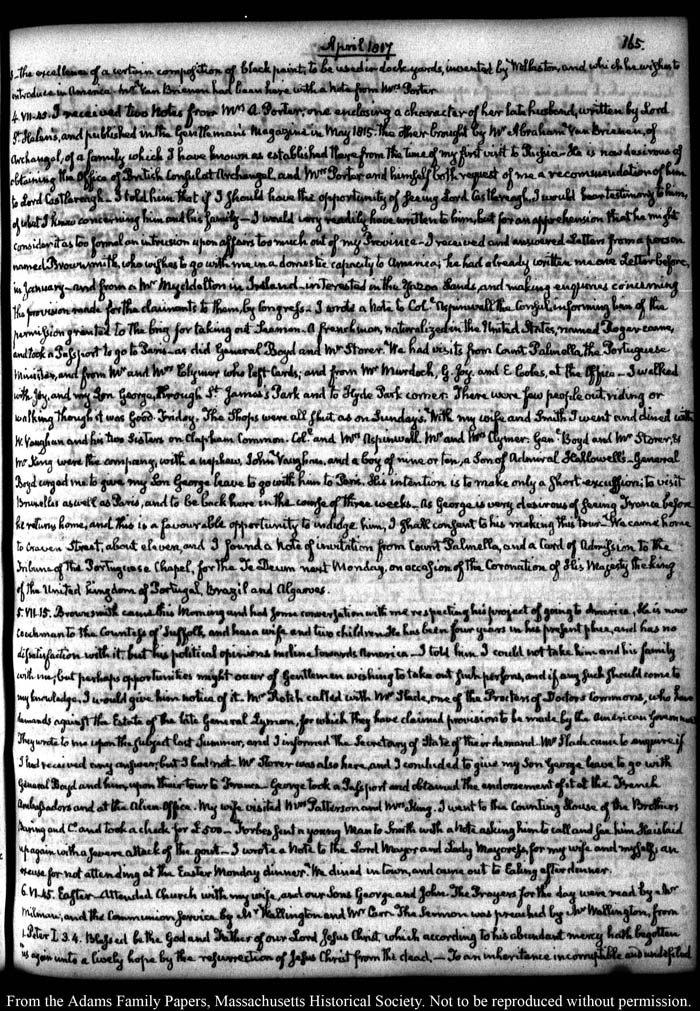 April 1817
165.
s. the excellence of a certain composition of black paint, to be used in dock yards, invented by Wolkston, and which he wishes to
introduce in America. Mr. Van Brienen had been here with a Note from Mrs. Porter
4. VII.45. I received two Notes from Mrs. A. Porter; one enclosing a character of her late husband, written by Lord
St. Helens, and published in the Gentleman's Magazine in May 1815. the other brought by Mr. Abraham Van Brienen, of
Archangel, of a family which I have known as established there from the time of my first visit to Russia. He is now desirous of
obtaining the Office of British Consul at Archangel, and Mrs. Porter and himself both request of me a recommendation of him
to Lord Castlereagh — I told him that if I should have the opportunity of seeing Lord Castlereagh, I would bear testimony to him,
of what I knew concerning him and his family — I would very readily have written to him, but for an apprehension that he might
consider it as too formal an intrusion upon affairs too much out of my Province — I received and answered Letters from a person
named Brownsmith, who wishes to go with me in a domestic capacity to America; he had already written me one Letter before,
in January — and from a Mr. Myeldalton in Ireland — interested in the Yazoo Lands, and making enquiries concerning
the provision made for the claimants to them, by Congress. I wrote a Note to Col. Aspinwall the Consul, informing him of the
permission granted to the brig for taking out Seamen. A frenchman, naturalized in the United States, named Rogar came,
and took a Passport to go to Paris — as did General Boyd and Mr. Storer. We had visits from Count Palmella, the Portuguese
Minister, and from Mr. and Mrs. Clymer who left Cards; and from Mr. Murdoch, G. Joy, and E. Coles, at the Office — I walked
with Joy, and my Son George, through St. James's Park and to Hyde Park corner. There were few people out, riding or
walking though it was Good Friday. The Shops were all shut as on Sundays. With my wife and Smith I went and dined with
W. Vaughan and his two Sisters on Clapham Common. Col. and Mrs. Aspinwall Mr. and Mrs. Clymer: Genl. Boyd and Mr. Storer, &
Mr. King were the company, with a nephew, John Vaughan, and a boy of nine or ten, a Son of Admiral Hallowell's — General
Boyd urged me to give my Son George leave to go with him to Paris. His intention is to make only a short excursion to visit
Brussells as well as Paris, and to be back here in the course of three weeks — As George is very desirous of seeing France before
he returns home, and this is a favourable opportunity to indulge him, I shall consent to his making this tour — We came home
to Craven Street, about eleven, and I found a Note of invitation from Count Palmella, and a Card of Admission to the
Tribune of the Portuguese Chapel, for the Te Deum next Monday, on occasion of the Coronation of His Majesty the King
of the United Kingdom of Portugal, Brazil and Algarves.
5. VII.15. Brownsmith came this Morning and had some conversation with me, respecting his project of going to America. He is now
Coachman to the Countess of Suffolk, and has a wife and two children. He has been four years in his present place, and has no
dissatisfaction with it, but his political opinions incline towards America — I told him I could not take him and his family
with me; but perhaps opportunities might occur of Gentlemen wishing to take out such persons, and if any such should come to
my knowledge, I would give him notice of it. Mr. Rotch called with Mr. Slade, one of the Proctors of Doctors Commons, who have
demands against the Estate of the late General Lyman, for which they have claimed provision to be made by the American Government.
They wrote to me upon the subject last Summer, and I informed the Secretary of State of their demand. Mr. Slade came to enquire if
I had received any answer, but I had not. Mr. Storer was also here, and I concluded to give my Son George leave to go with
General Boyd and him, upon their tour to France. George took a Passport and obtained the endorsement of it at the French
Ambassadors and at the Alien Office. My wife visited Mrs. Patterson and Mrs. King. I went to the Counting House of the Brothers
Baring and Co. and took a check for £500 — Forbes sent a young Man to Smith with a Note asking him to call and see him. He is laid
up again with a severe attack of the gout — I wrote a Note to the Lord Mayor and Lady Mayoress, for my wife and myself, an
excuse for not attending at the Easter Monday dinner. We dined in town, and came out to Ealing after dinner.
6. VI.45. Easter — Attended Church with my wife, and our Sons George and John. The Prayers for the day were read by Mr.
Milman; and the Communion service by Mr. Wallington and Mr. Carr. The Sermon was preached by Mr. Wallington, from
1. Peter I. 3.4. Blessed be the God and Father of our Lord Jesus Christ, which according to his abundant mercy hath begotten
us again unto a lively hope by the resurrection of Jesus Christ from the dead. — To an inheritance incorruptible and undefiled
From the Adams Family Papers, Massachusetts Historical Society. Not to be reproduced without permission.